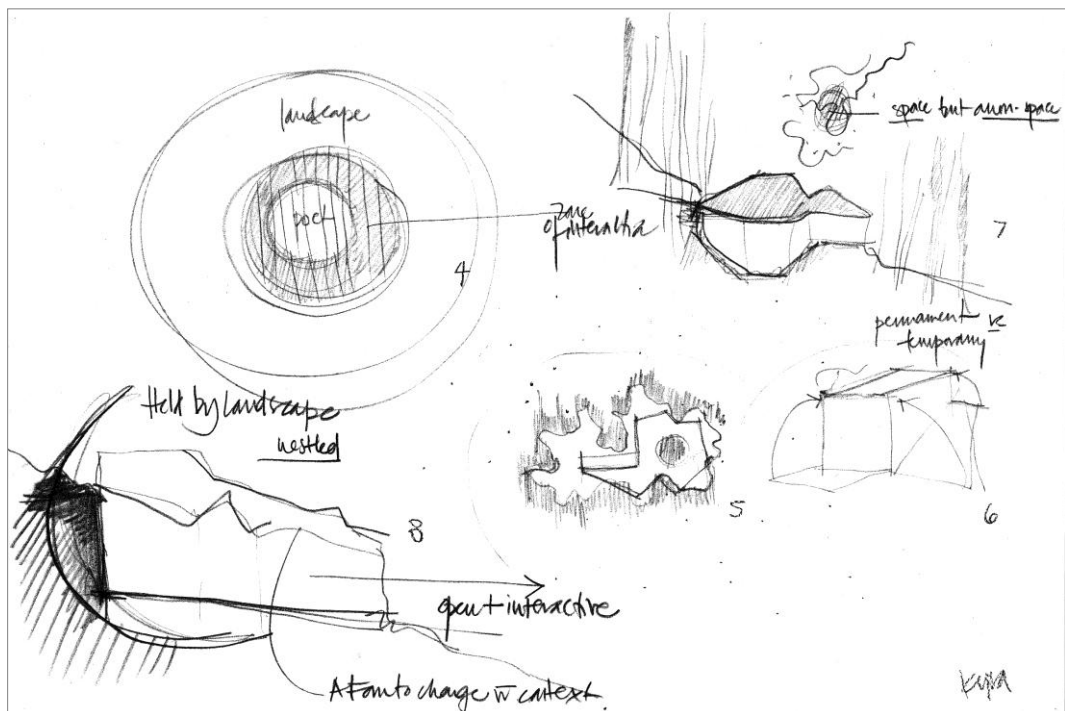 landscape
4
zone
of interactio
space but a non-space
7
permament vs
temporary
Held by landscape
nestled
5
6
8
open + interactive
to change w context.